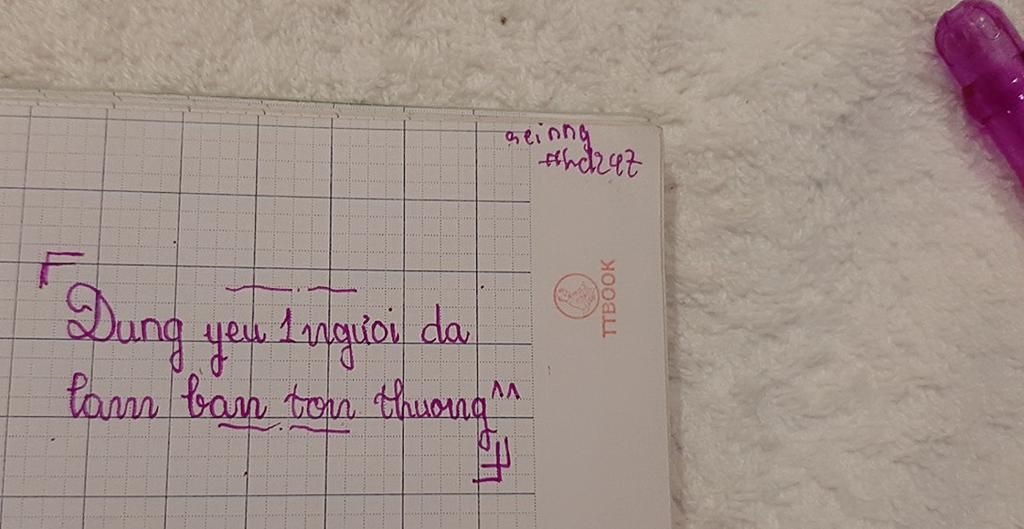 seinng
#hd247
TTBOOK
Dung yeu 1 nguoi da
lam ban ton thuong^^